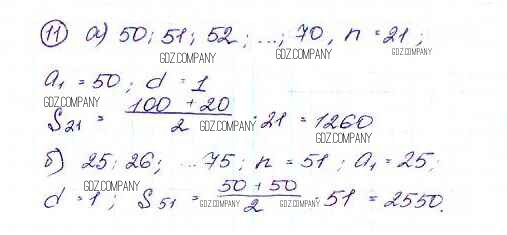 11 а) 50; 51; 52; ...; 70, n = 21;
GDZ.COMPANY GDZ.COMPANY GDZ.COMPANY
a₁ = 50; d = 1
GDZ.COMPANY GDZ.COMPANY
S₂₁ = (100 + 20)/2 · 21 = 1260
GDZ.COMPANY GDZ.COMPANY
б) 25; 26; ...75; n = 51; a₁ = 25;
GDZ.COMPANY
d = 1; S₅₁ = (50 + 50)/2 · 51 = 2550.
GDZ.COMPANY GDZ.COMPANY GDZ.COMPANY